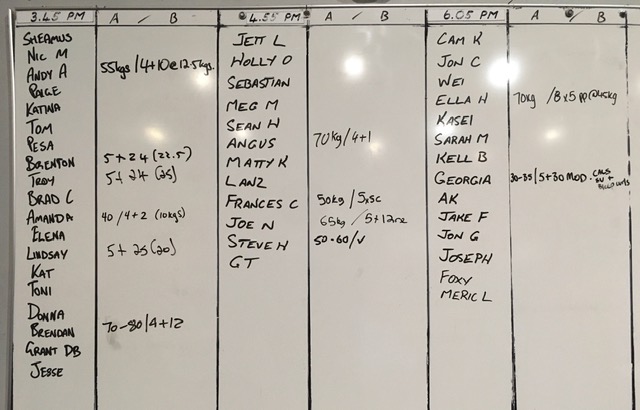 3.45 PM A / B
SHEAMUS
NIC M
ANDY A 55kgs/4+10@12.5kgs.
PAIGE
KATINA
TOM
PESA
BRENTON 5+24 (22.5)
TROY 5+24 (25)
BRAD C
AMANDA 40/4+2 (10kgs)
ELENA
LINDSAY 5+25(20)
KAT
TONI
DONNA
BRENDAN 70-80/4+12
GRANT DB
JESSE
4.55 PM A / B
JETT L
HOLLY O
SEBASTIAN
MEG M
SEAN H
ANGUS 70kg/4+1
MATTY K
LANZ
FRANCES C 50kg/5xsc
JOE N 65kg / 5+12
STEVE H 50-60/
GT
6.05 PM A / B
CAM K
JON C
WEI
ELLA H 70kg /8x5 pp@45kg
KASEI
SARAH M
KELL B
GEORGIA 30-35/5+30 MOD.
AK
JAKE F
JON G
JOSEPH
FOXY
MERIC L